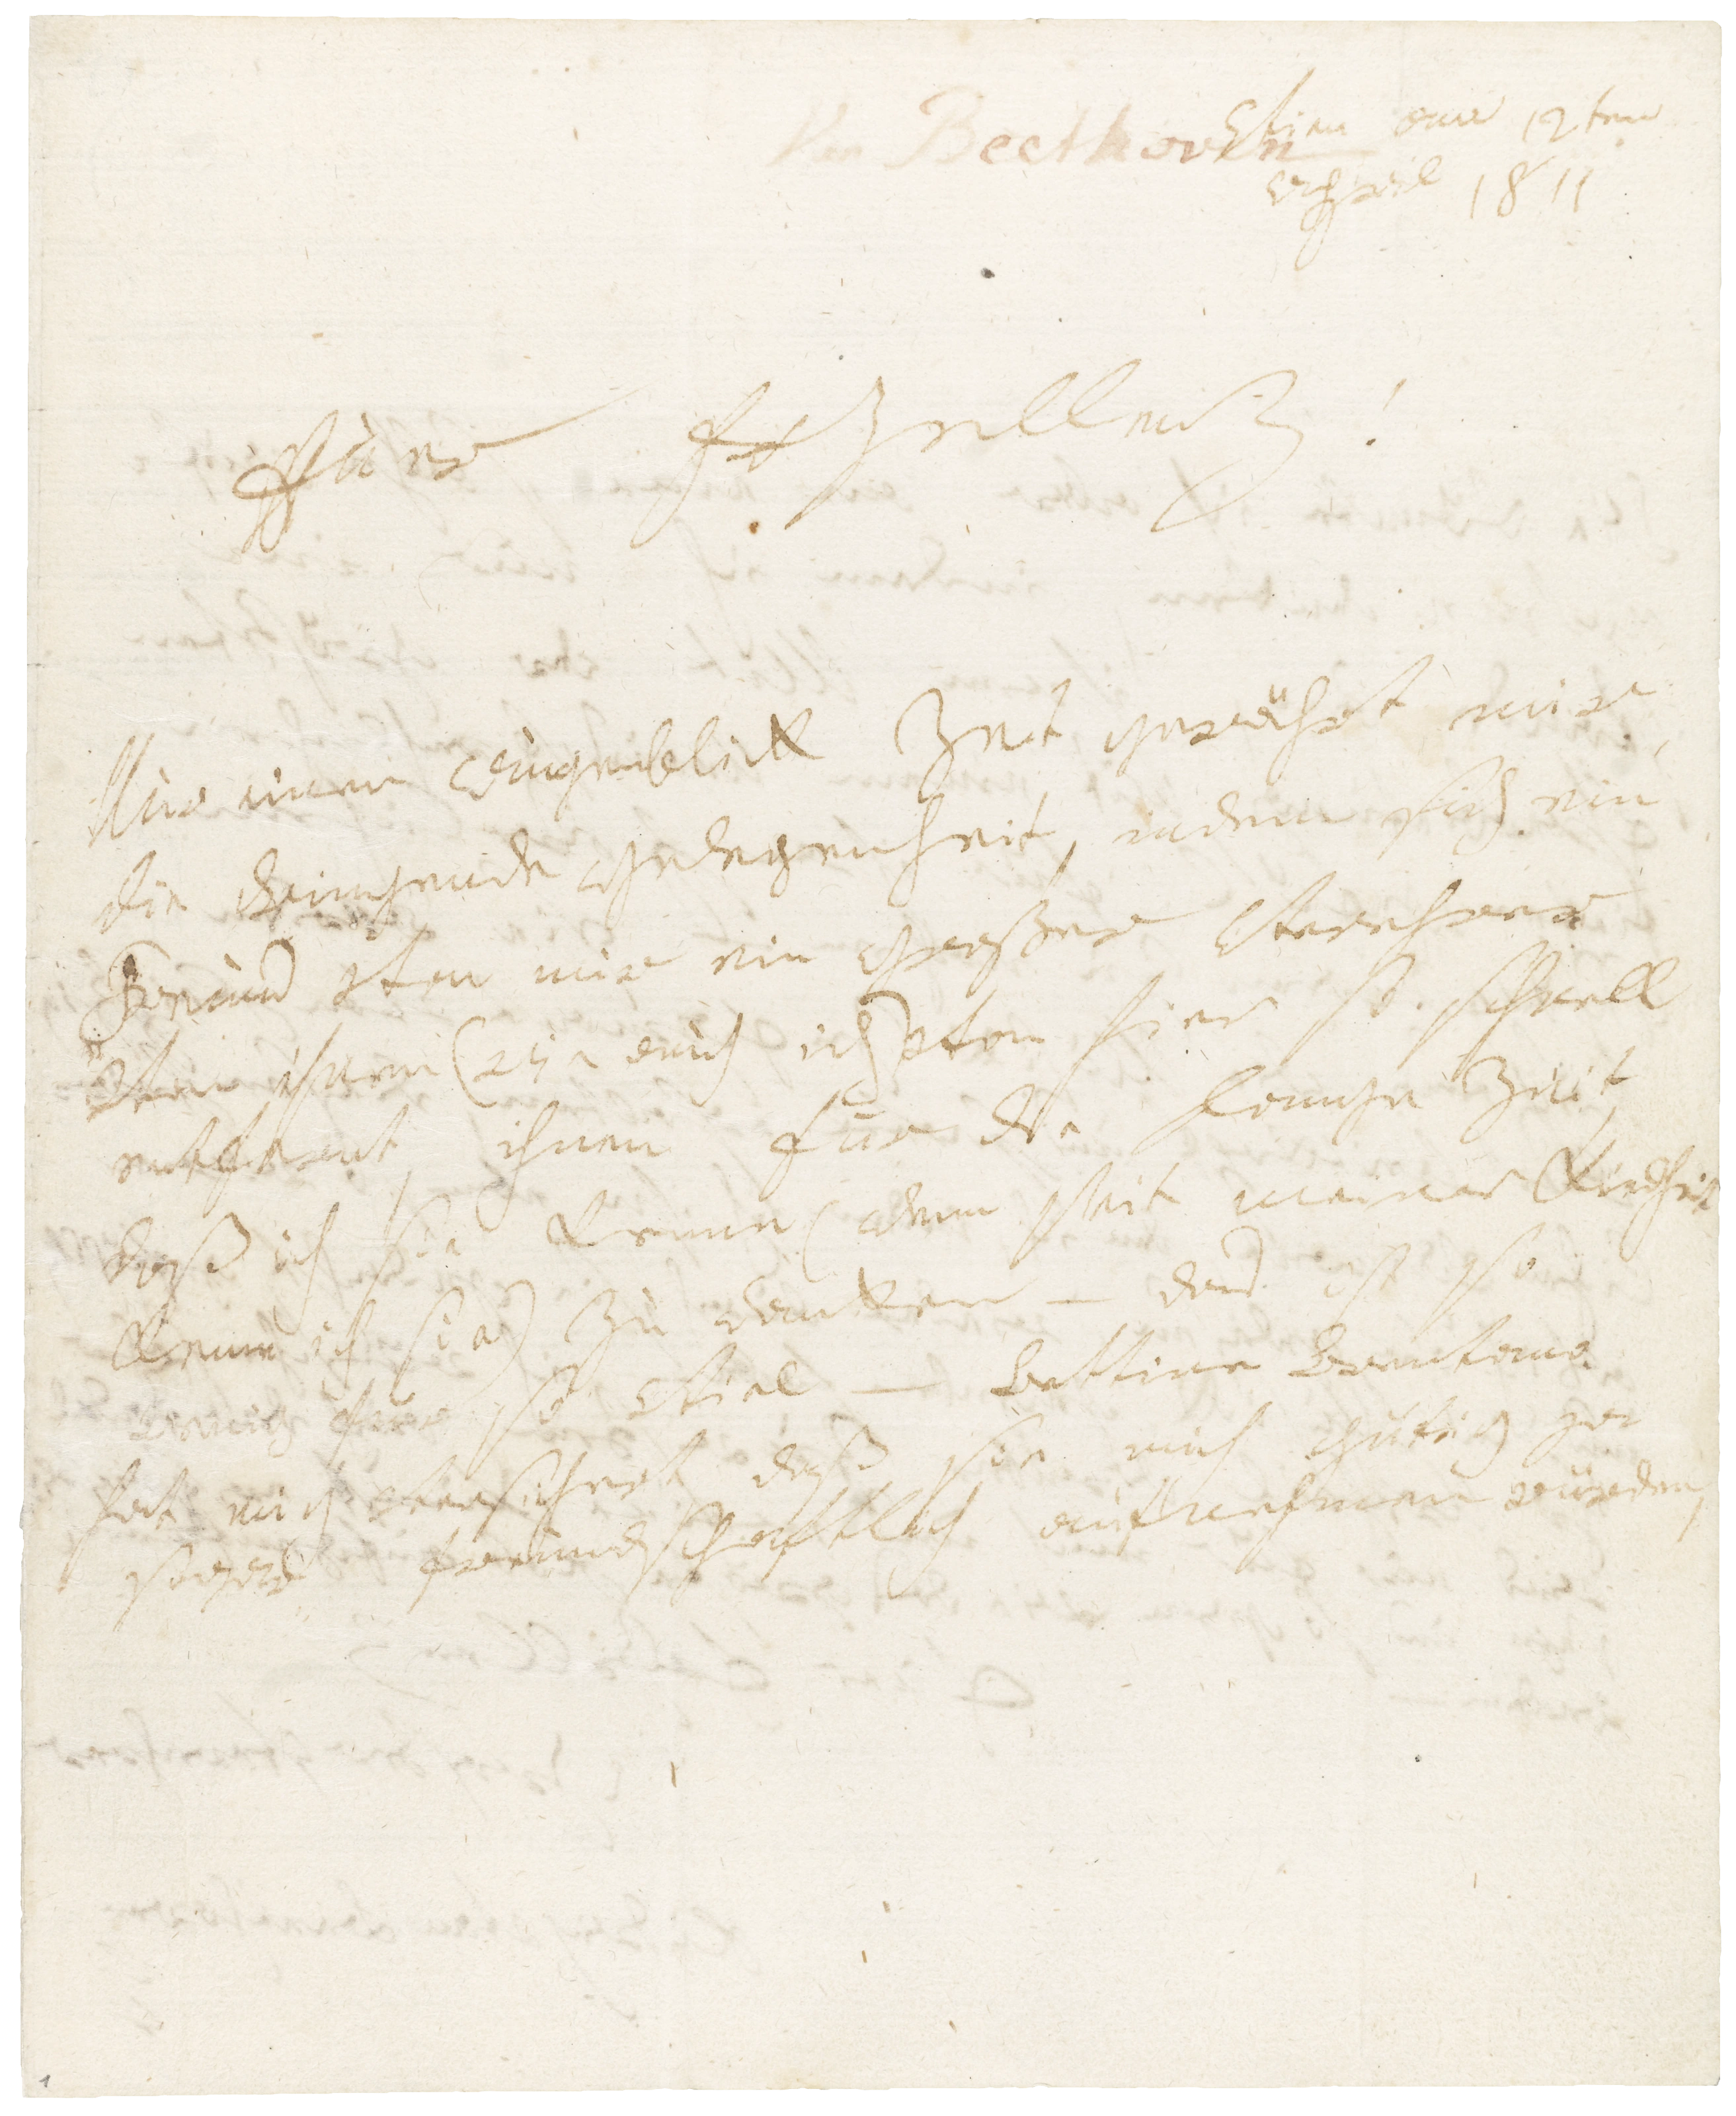 Von Beethoven
Vien am 12ten
april 1811
Euer Exzellenz!
Nur einen Augenblick Zeit gewährt mir
die dringende Gelegenheit, indem sich ein
Freund von mir ein großer Verehrer
von ihnen (wie auch ich) von hier so schnell
entfernt, ihnen für die lange Zeit,
daß ich sie kenne (denn seit meiner Kindheit
kenne ich sie) zu danken — das ist so
wenig für so viel — Bettine Brentano
hat mich versichert, daß sie mich gütig ja
sogar freundschaftlich aufnehmen würden,
1